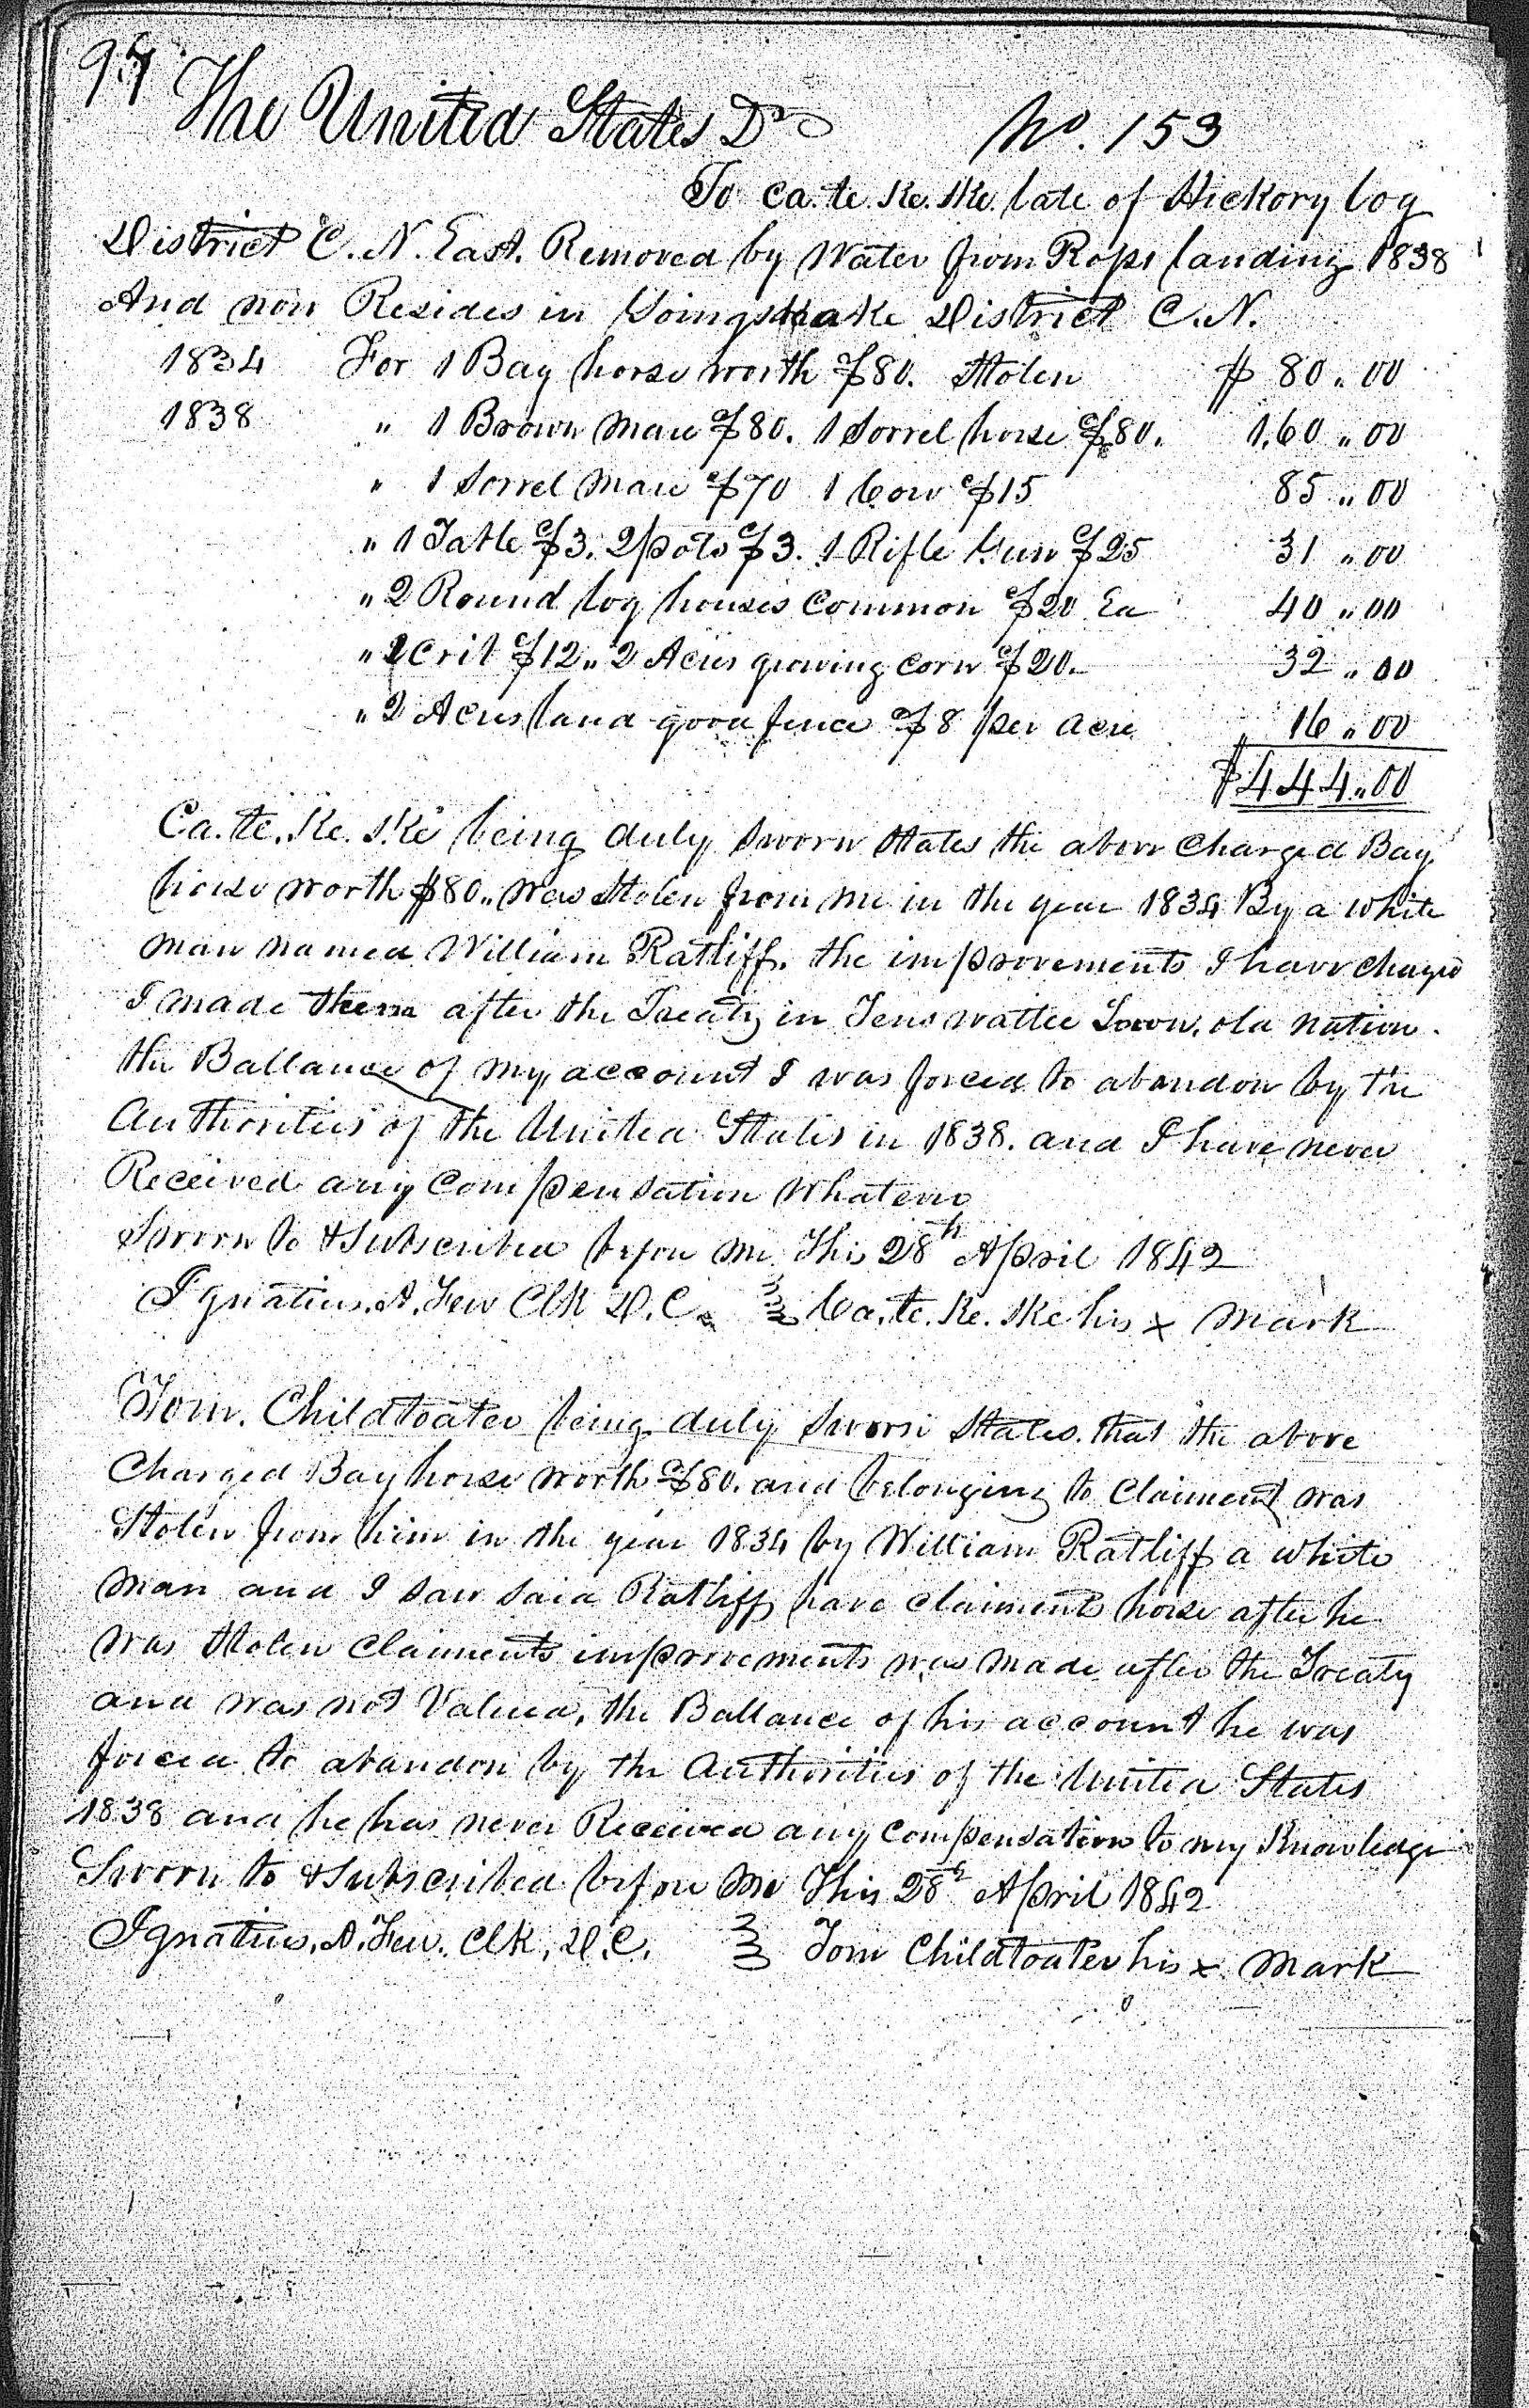 94
The United States Dr No. 153
To Ca.te.ke.ske late of Hickory log
District C. N. East. Removed by Water from Ross landing 1838
And now Resides in Goingsnake District C. N.
1834 For 1 Bay horse worth $80. Stolen $ 80.,00
1838 " 1 Brown Mare $80. 1 Sorrel horse $80. 1.60.,00
" 1 Sorrel Mare $70 1 Cow $15 85.,00
" 1 Table $3. 2 pots $3. 1 Rifle Gun $25 31.,00
" 2 Round log houses Common $20 Ea 40.,00
" 1 Crib $12., 2 Acres growing corn $20. 32.,00
" 2 Acres land good fence $8 per acre 16.,00
$444.,00
Ca.te.ke.ske being duly sworn States the above Charged Bay
horse worth $80., was Stolen from me in the year 1834 By a white
man named William Ratliff. the improvements I have charged
I made them after the Treaty in Tensawattee Town, old nation.
the Ballance of my account I was forced to abandon by the
Authorities of the United States in 1838. and I have never
Received any Compensation Whatever
Sworn to & Subscribed before me This 28th April 1842
Ignatius. A. Few Clk D. C. Ca.te.ke.ske his x Mark
Tom. Childtoater being duly sworn States. that the above
Charged Bay horse worth $80. and belonging to Claiment was
Stolen from him in the year 1834 by William Ratliff a white
Man and I saw said Ratliff have claiments horse after he
was Stolen Claiments improvements was made after the Treaty
and was not Valued, the Ballance of his account he was
forced to abandon by the Authorities of the United States
1838 and he has never Received any compensation to my Knowledge
Sworn to & Subscribed before Me This 28th April 1842
Ignatius. A. Few. Clk, D. C. Tom Childtoater his x Mark